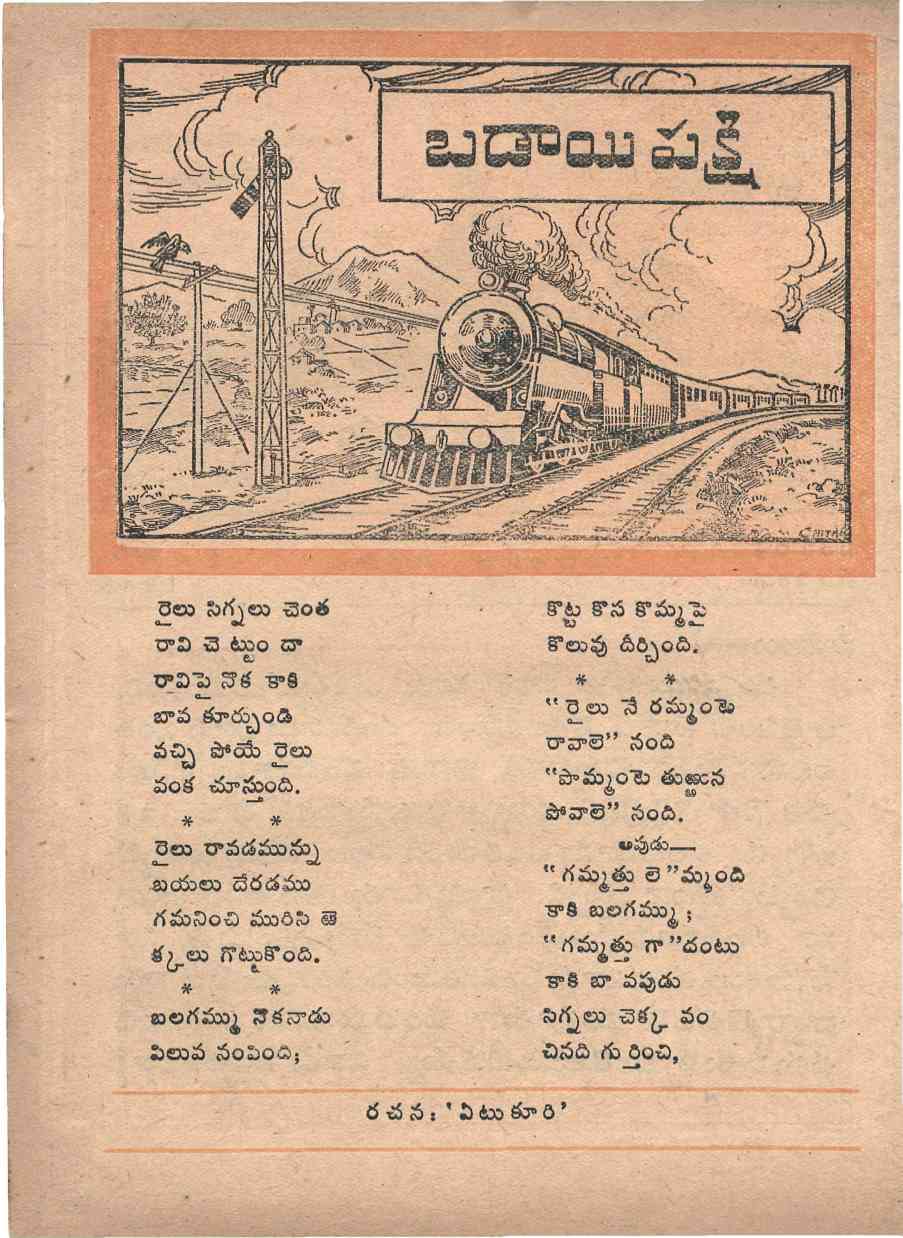 బడాయి పక్షి
CHITRA
రైలు సిగ్నలు చెంత
రావి చె ట్టుం దా
రావిపై నొక కాకి
బావ కూర్చుండి
వచ్చి పోయే రైలు
వంక చూస్తుంది.
* *
రైలు రావడమున్ను
బయలు దేరడము
గమనించి మురిసి ఱె
క్కలు గొట్టుకొంది.
* *
బలగమ్ము నొకనాడు
పిలువ నంపింది;
కొట్ట కొన కొమ్మపై
కొలువు దీర్చింది.
* *
“రైలు నే రమ్మంటె
రావాలె” నంది
“పొమ్మంటె తుఱ్ఱున
పోవాలె” నంది.
అపుడు—
“గమ్మత్తు లె”మ్మంది
కాకి బలగమ్ము;
“గమ్మత్తు గా”దంటు
కాకి బా వపుడు
సిగ్నలు చెక్క వం
చినది గు ర్తించి,
రచన: ‘ఏటుకూరి’